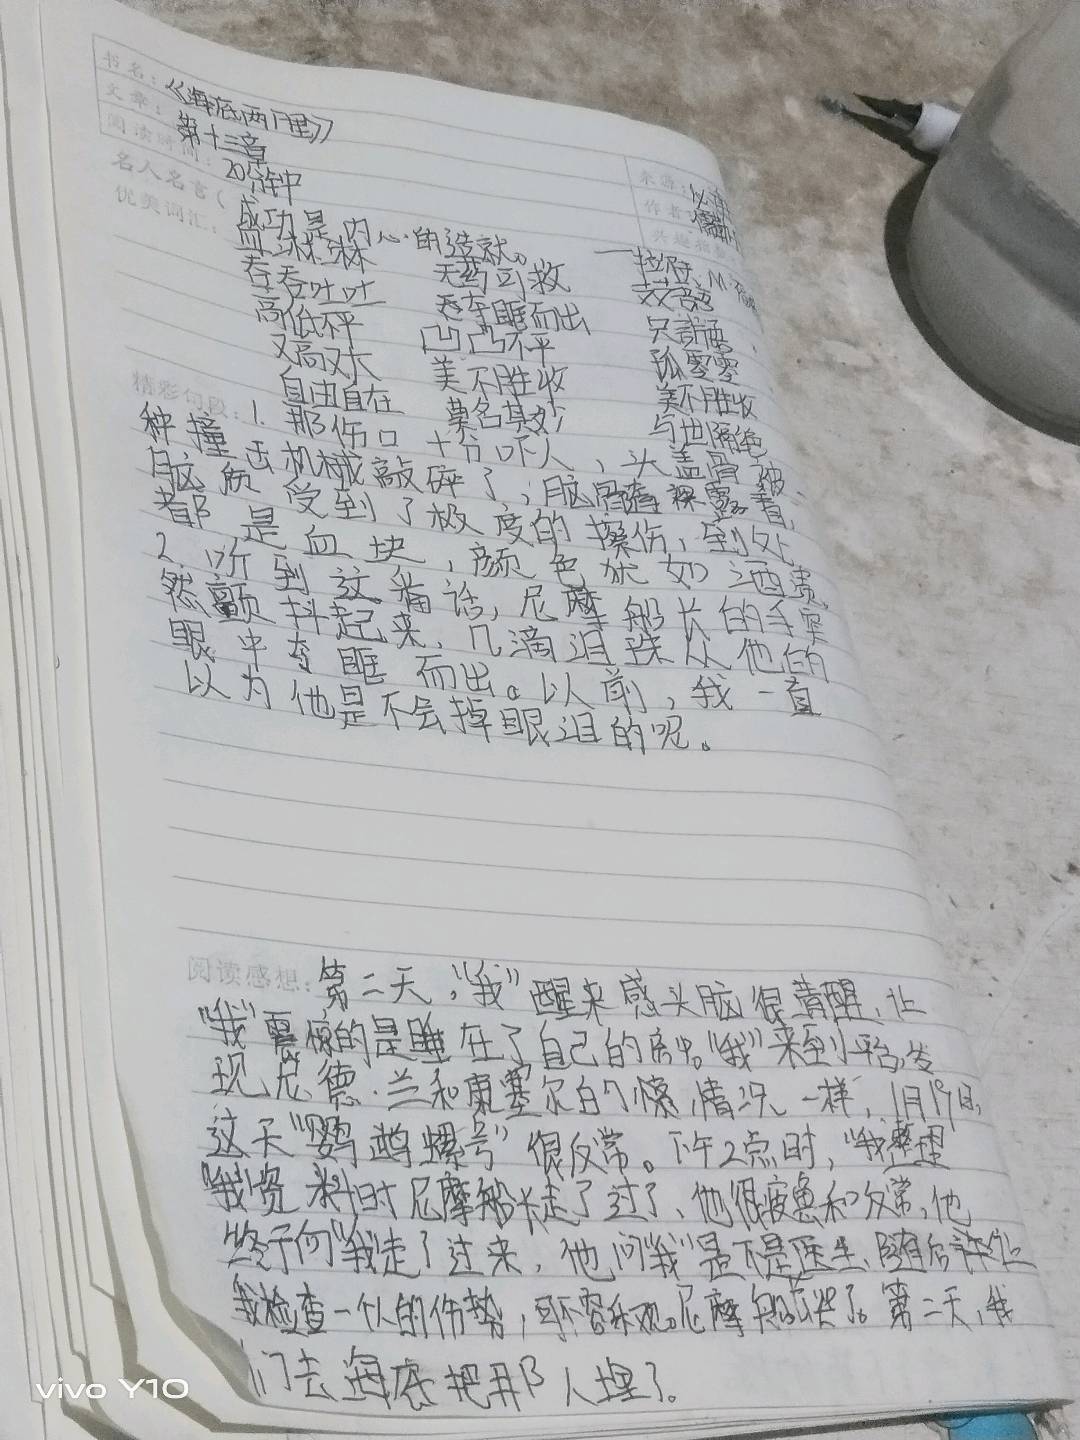 书名：《海底两万里》
文章：第十三章
阅读时间：20分钟
来源：
作者
名人名言（成功是内心的造就。
优美词汇：血淋淋 无药可救
吞吞吐吐 夺眶而出
高低不平 凹凸不平 只言
又高又大 美不胜收 孤零零
自由自在 莫名其妙 美不胜收
与世隔绝
精彩句段：1.那伤口十分吓人，头盖骨被
种撞击机械敲碎了，脑髓裸露着，
脑质受到了极度的擦伤，到处
都是血块，颜色犹如酒渍。
2.听到这番话，尼摩船长的手突
然颤抖起来，几滴泪珠从他的
眼中夺眶而出。以前，我一直
以为他是不会掉眼泪的呢。
阅读感想：第二天，“我”醒来感头脑很清醒，让
“我”震惊的是睡在了自己的房中。“我”来到平台，发
现尼德·兰和康塞尔的情况一样，1月19日，
这天“鹦鹉螺号”很反常。下午2点时，“我”整理
“我”资料时尼摩船长走了过了、他很疲惫和反常，他
终于向“我”走了过来，他问“我”是不是医生、随后许让
我检查一个人的伤势，可不容乐观。尼摩船长哭了。第二天，我
们去海底把那人埋了。
vivo Y10